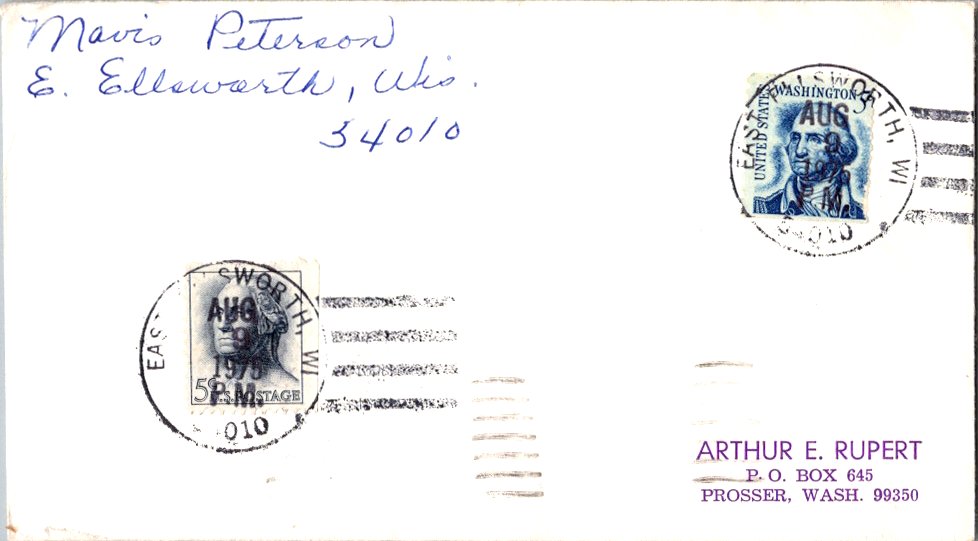 Mavis Peterson
E. Ellsworth, Wis.
54010
EAST ELLSWORTH, WI
AUG
9
1975
P.M.
54010
UNITED STATES
WASHINGTON 5¢
EAST ELLSWORTH, WI
AUG
9
1975
P.M.
010
5¢ U.S. POSTAGE
ARTHUR E. RUPERT
P. O. BOX 645
PROSSER, WASH. 99350